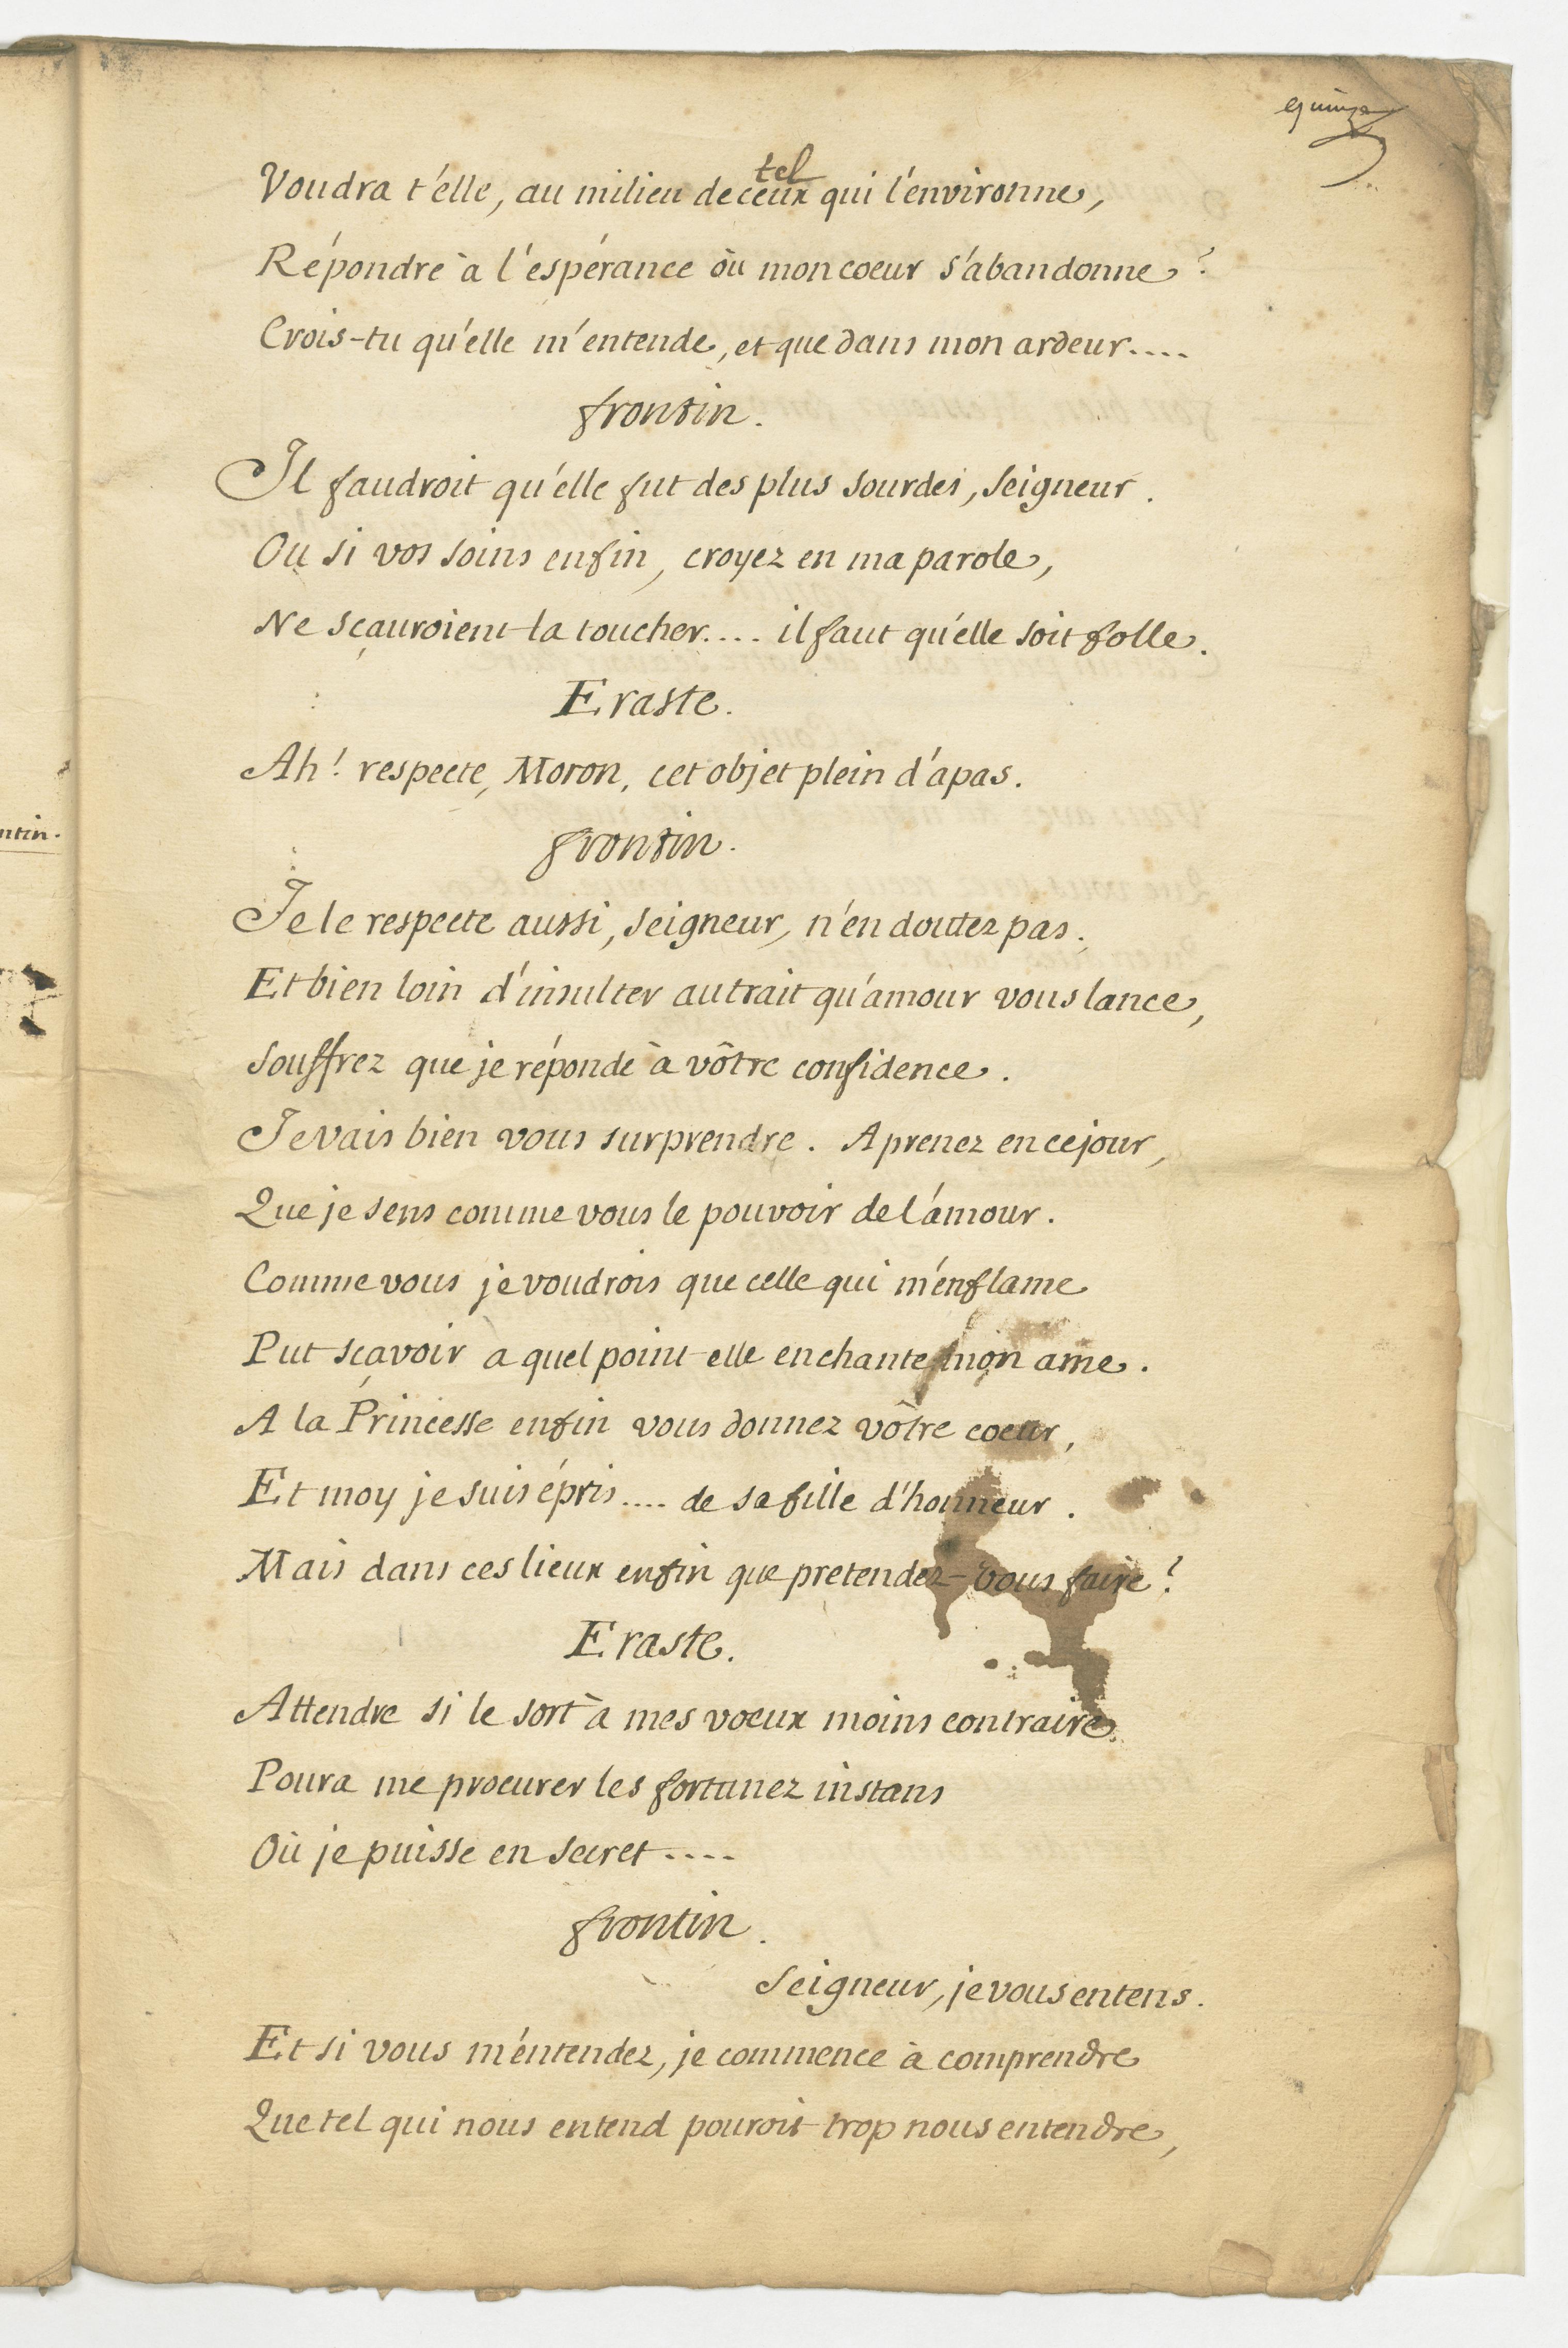 quinze
tel
Voudra t'elle, au milieu de ceux qui l'environne,
Répondre à l'espérance où mon coeur s'abandonne?
Crois-tu qu'elle m'entende, et que dans mon ardeur....
frontin.
Il faudroit qu'elle fut des plus sourdes, Seigneur.
Ou si vos soins enfin, croyez en ma parole,
Ne sçauroient la toucher.... il faut qu'elle soit folle.
Eraste.
Ah! respecte, Moron, cet objet plein d'apas.
frontin.
Je le respecte aussi, Seigneur, n'en doutez pas.
Et bien loin d'insulter au trait qu'amour vous lance,
Souffrez que je réponde à vôtre confidence.
Je vais bien vous surprendre. Aprenez en ce jour,
Que je sens comme vous le pouvoir de l'amour.
Comme vous je voudrois que celle qui m'enflame
Put sçavoir a quel point elle enchante mon ame.
A la Princesse enfin vous donnez vôtre coeur,
Et moy je suis épris.... de sa fille d'honneur.
Mais dans ces lieux enfin que pretendez-vous faire?
Eraste.
Attendre si le sort à mes voeux moins contraire
Poura me procurer les fortunez instans
Où je puisse en secret....
frontin.
Seigneur, je vous entens.
Et si vous m'entendez, je commence à comprendre
Que tel qui nous entend pouroit trop nous entendre,
ntin.